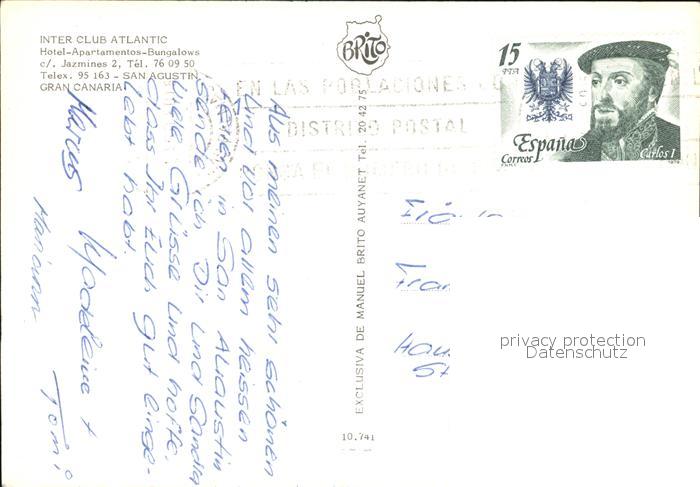 INTER CLUB ATLANTIC
Hotel-Apartamentos-Bungalows
c/. Jazmines 2, Tél. 76 09 50
Telex. 95 163 - SAN AGUSTIN
GRAN CANARIA
BRITO
15
PTA
España
Correos
Carlos I
EN LAS POBLACIONES
DISTRITO POSTAL
Aus meinen sehr schönen
und vor allem heissen
Ferien in San Augustin
sende ich Dir und Sandra
viele Grüsse und hoffe,
dass Ihr Euch gut einge-
lebt habt.
Madeleine +
Tomi
EXCLUSIVA DE MANUEL BRITO AUYANET Tel. 20 42 75
10.741
Frau
privacy protection
Datenschutz